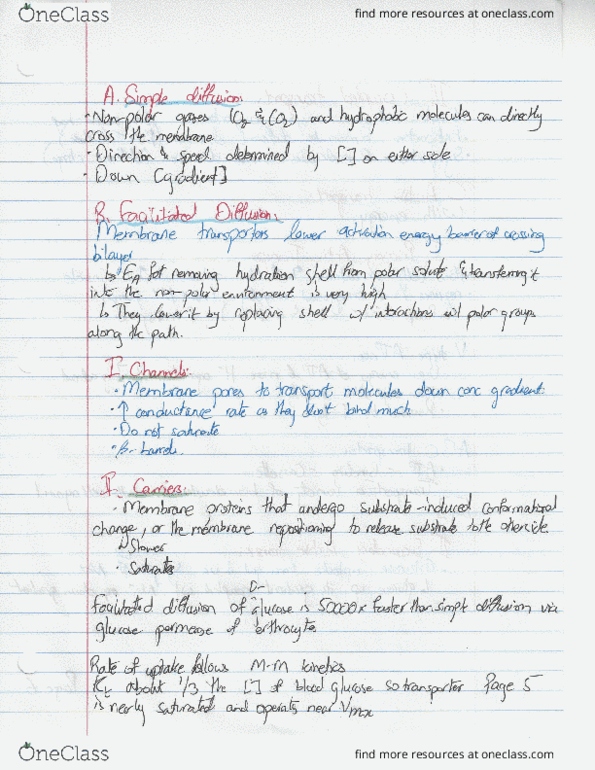 OneClass
find more resources at oneclass.com
A. Simple diffusion:
· Non-polar gases (O2 & CO2) and hydrophobic molecules can directly
cross the membrane
· Direction & speed determined by [ ] on either side
· Down [gradient]
B. Facilitated Diffusion:
Membrane transporters lower activation energy barrier of crossing
bilayer
↳ EA for removing hydration shell from polar solute & transferring it
into the non-polar environment is very high
↳ They lower it by replacing shell w/ interactions w/ polar groups
along the path.
I. Channels:
· Membrane pores to transport molecules down conc gradient.
· ↑ conductance rate as they don't bind much
· Do not saturate
· β-barrels
I. Carriers:
· Membrane proteins that undergo substrate-induced conformational
change, or the membrane repositioning to release substrate to the other side
↳ Slower
Saturates
D-
Facilitated diffusion of glucose is 50000x faster than simple diffusion via
glucose permease of erthrocyte
Rate of uptake follows M-M kinetics
Kt about 1/3 the [ ] of blood glucose so transporter Page 5
is nearly saturated and operates near Vmax
OneClass
find more resources at oneclass.com